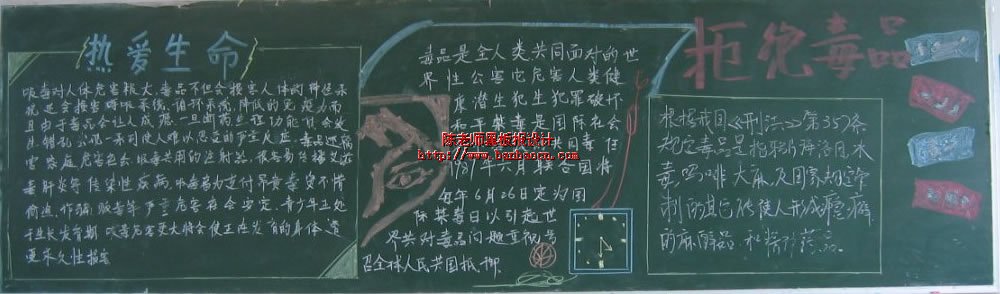 热爱生命
吸毒对人体危害极大,毒品不但会损害人体的神经系
统还会损害呼吸系统,循环系统,降低的免疫力而
且由于毒品会让人成瘾,一旦断药生理功能就会
出现一系列使人难以忍受的严重反应,毒品还祸
害家庭,危害社会,吸毒共用的注射器,很容易传播艾滋
毒肝炎等传染性疾病,吸毒者为支付昂贵毒资不惜
偷盗、诈骗、贩毒等严重危害社会安定,青少年正处
于生长发育期,吸毒危害更大将会使正在发育的身体遭
更永久性损害
毒品是全人类共同面对的世
界性公害它危害人类健
康滋生犯罪破坏
和平其毒是国际社会
年六月联合国将
每年6月26日定为国
际禁毒日以引起世
界共对毒品问题重视号
召全球人民共同抵御
拒绝毒品
根据我国《刑法》第357条
规定毒品是指鸦片海洛因、冰
毒、吗啡、大麻、及国家规定管
制的其它能使人形成瘾癖
的麻醉品和精神药品
陈老师黑板报设计
http://www.banbaocn.com